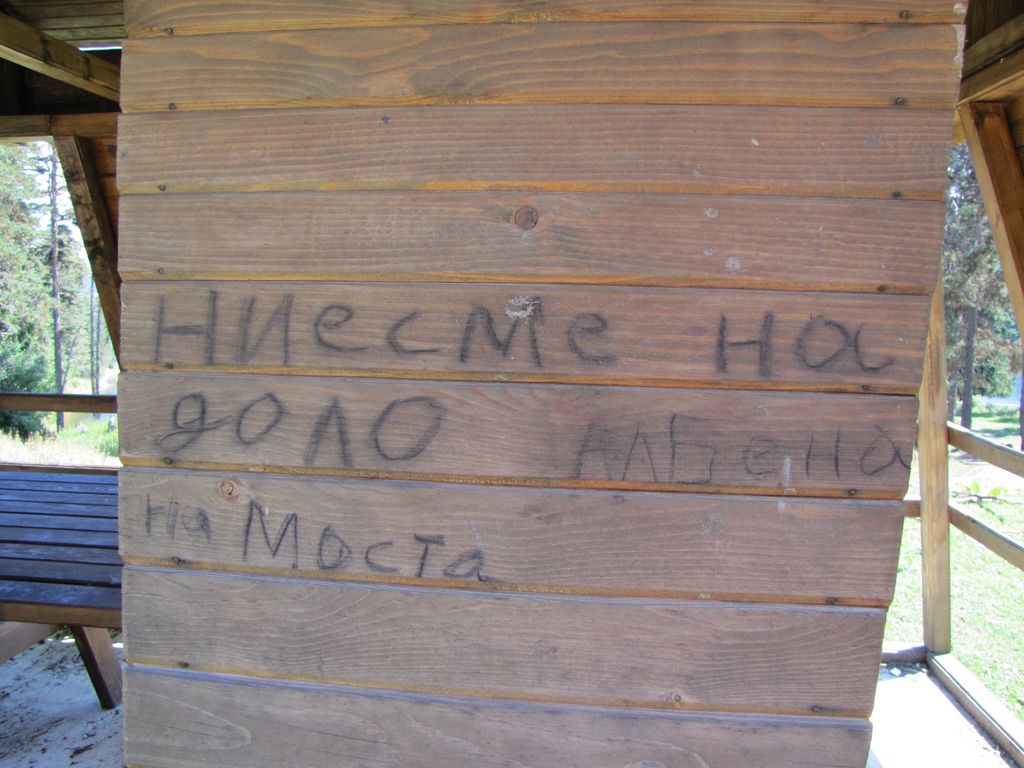 ниесме на
доло Албена
на Моста